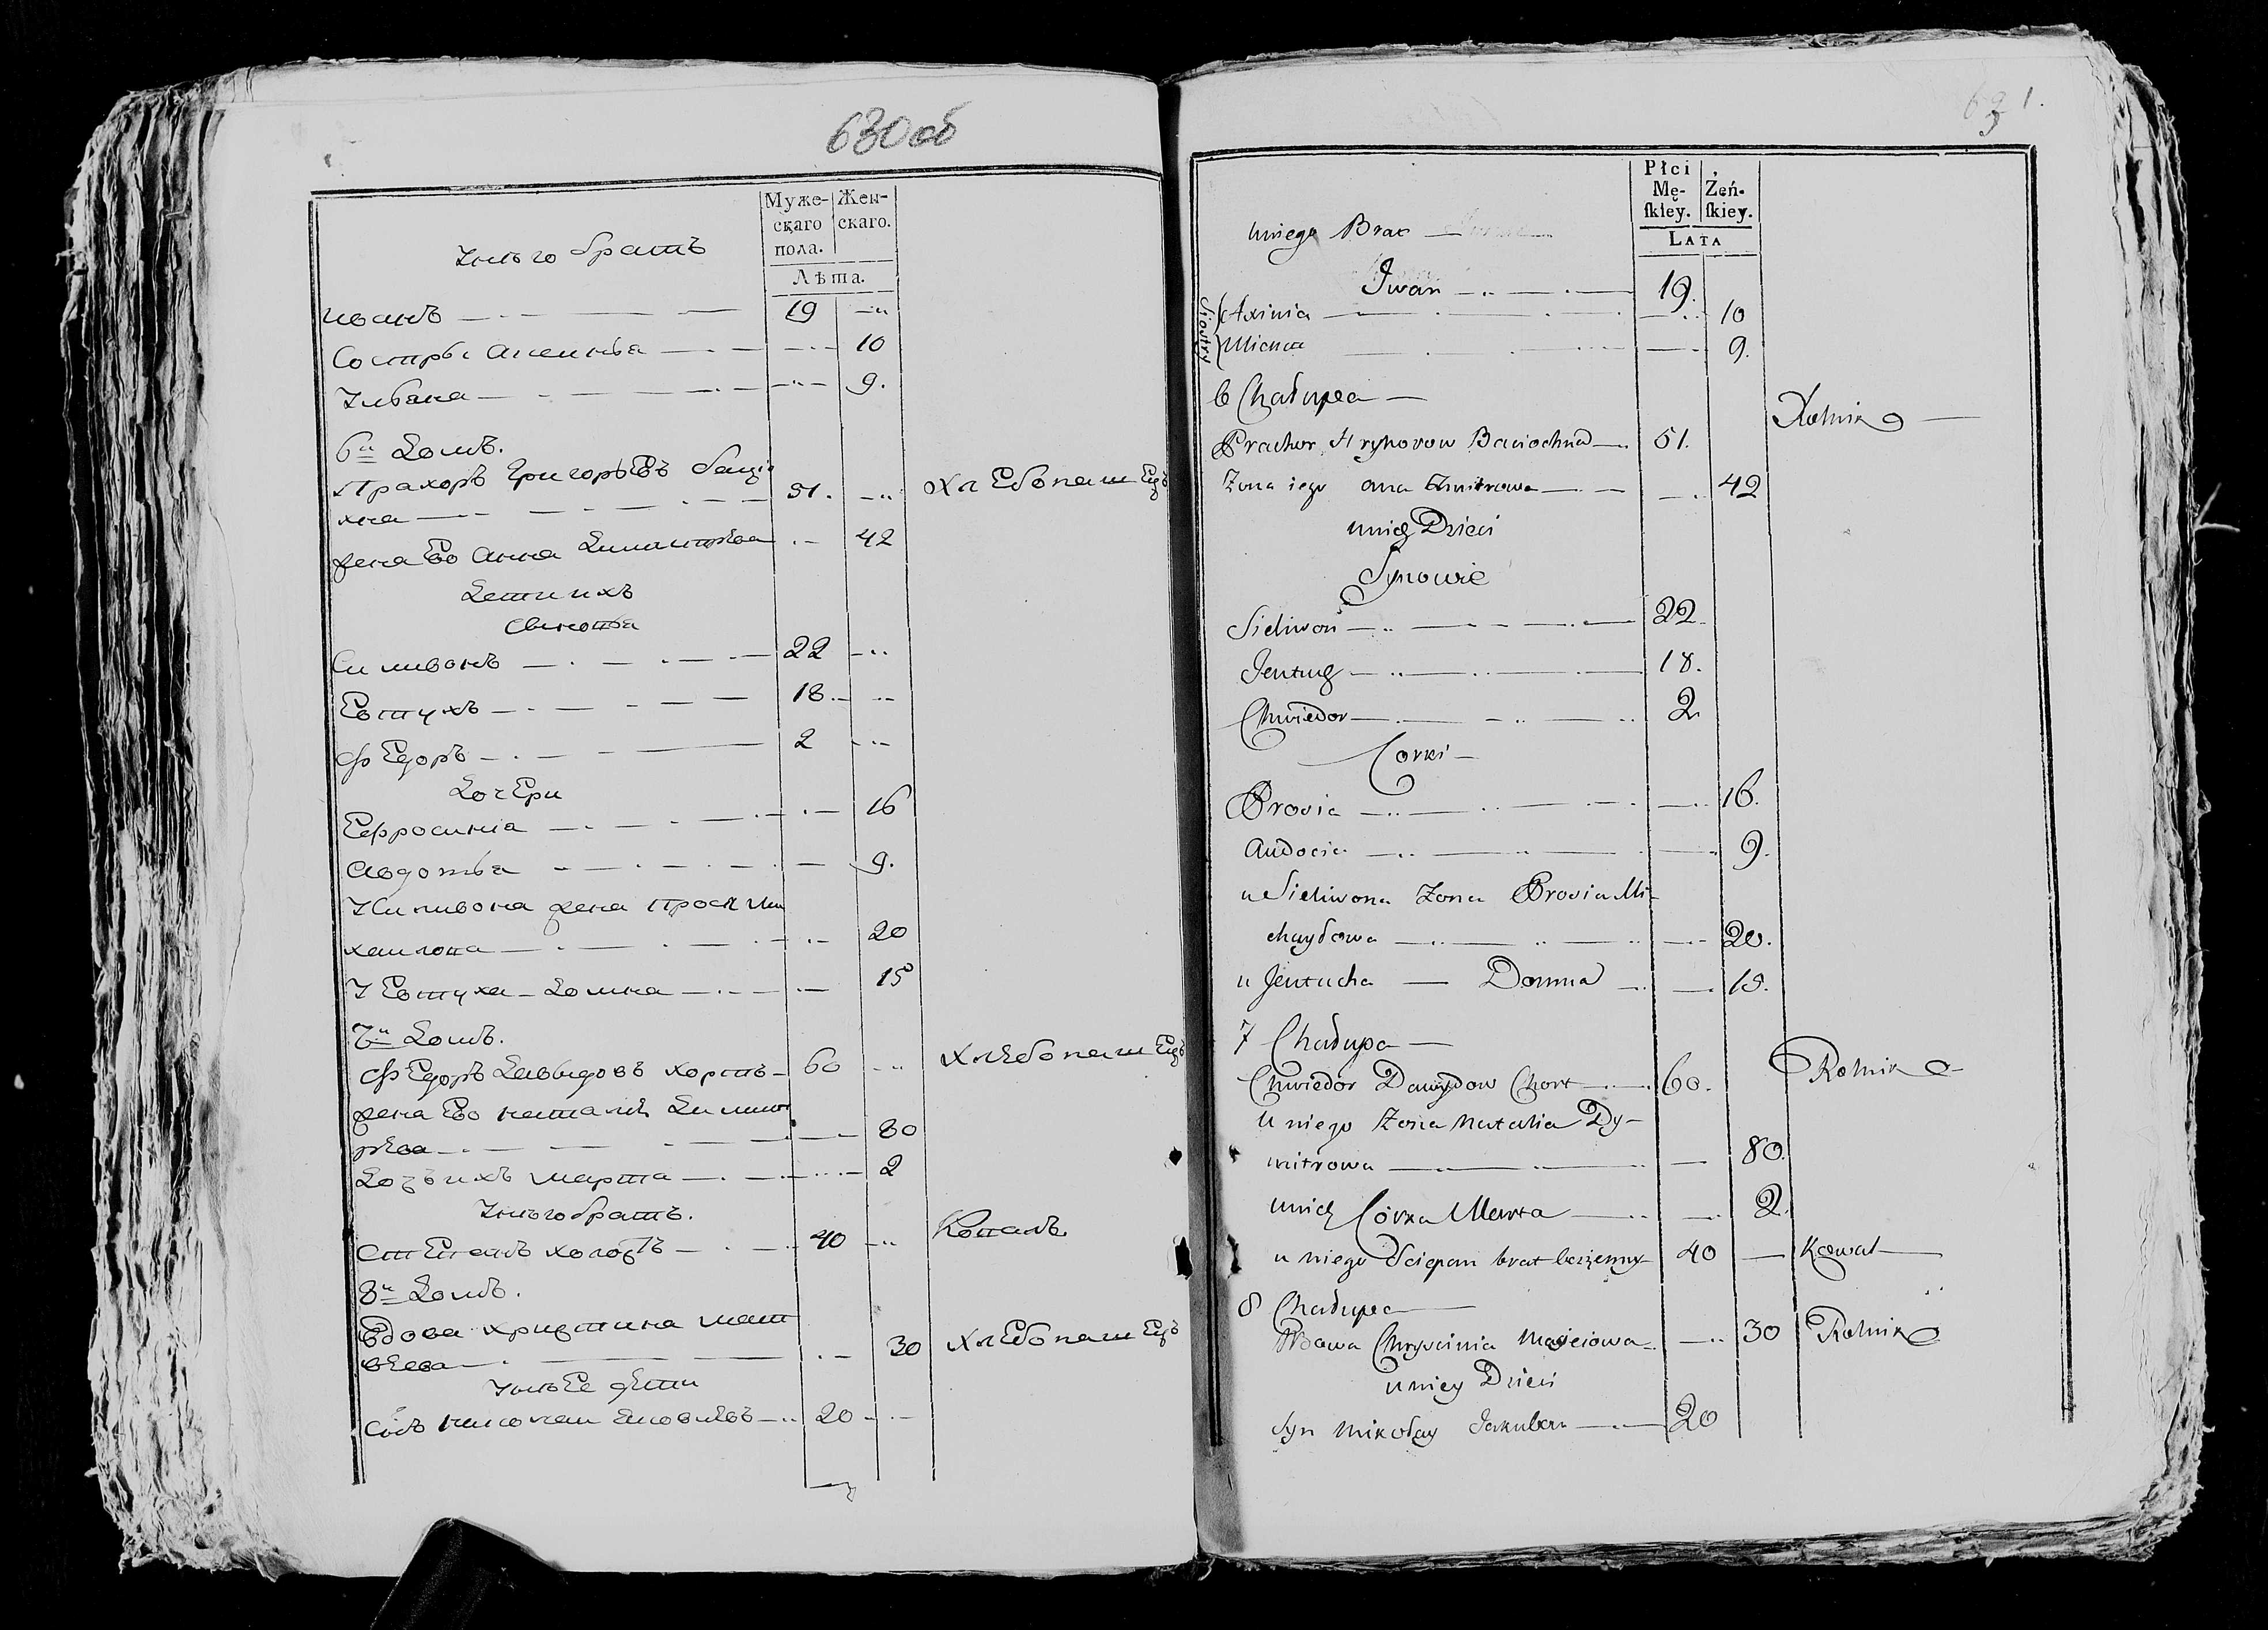 630об
Муже- Жен-
скаго скаго.
пола.
Лѣта.
У него братъ
иванъ 19
Сестры аксинья 10
9.
6й Домъ.
Прахоръ Григорьевъ бацю
хна 51. Хлебопашецъ
жена Ево Анна Димитрева 42
Дети ихъ
Сынови
Силивонъ 22
Евтухъ 18.
Федоръ 2
Дочери
Ефросинія 16
авдотья 9.
У Силивона жена Прося Ми
хаилова 20
У Евтуха Домна 15
7й Домъ.
Федоръ Давыдовъ хортъ 60 Хлебопашецъ
жена Ево наталя Димит
рева 80
Дочь ихъ марта 2
У него братъ.
степанъ холостъ 40 Коваль
8й Домъ.
Вдова христина мат
веева 30 Хлебопашецъ
У нее дети
Сынъ николай Яковлевъ 20
631.
Płci
Mę- Żeń-
skiey. skiey.
LATA
u niego Brat
Iwan 19.
Siostry
Axinia 10
9.
6 Chałupa
Prachor Hryhorow Baciochna 51. Rolnik
Żona iego Anna Dmitrowa 42
u nich Dzieci
Synowie
Sieliwon 22.
Jeutuch 18.
Chwiedor 2
Corki
Prosia 16.
Audocia 9.
u Sieliwona Żona Prosia Mi-
chayłowa 20.
u Jeutucha Domna 15.
7 Chałupa
Chwiedor Dawydow Chort 60. Rolnik
u niego Żona Natalia Dy-
mitrowa 80.
u nich Córka Marta 2.
u niego Sciepan brat bezżenny 40 Kowal
8 Chałupa
Wdowa Chryscinia Maciejowa 30 Rolnik
u niey Dzieci
Syn Mikołay Jakubow 20